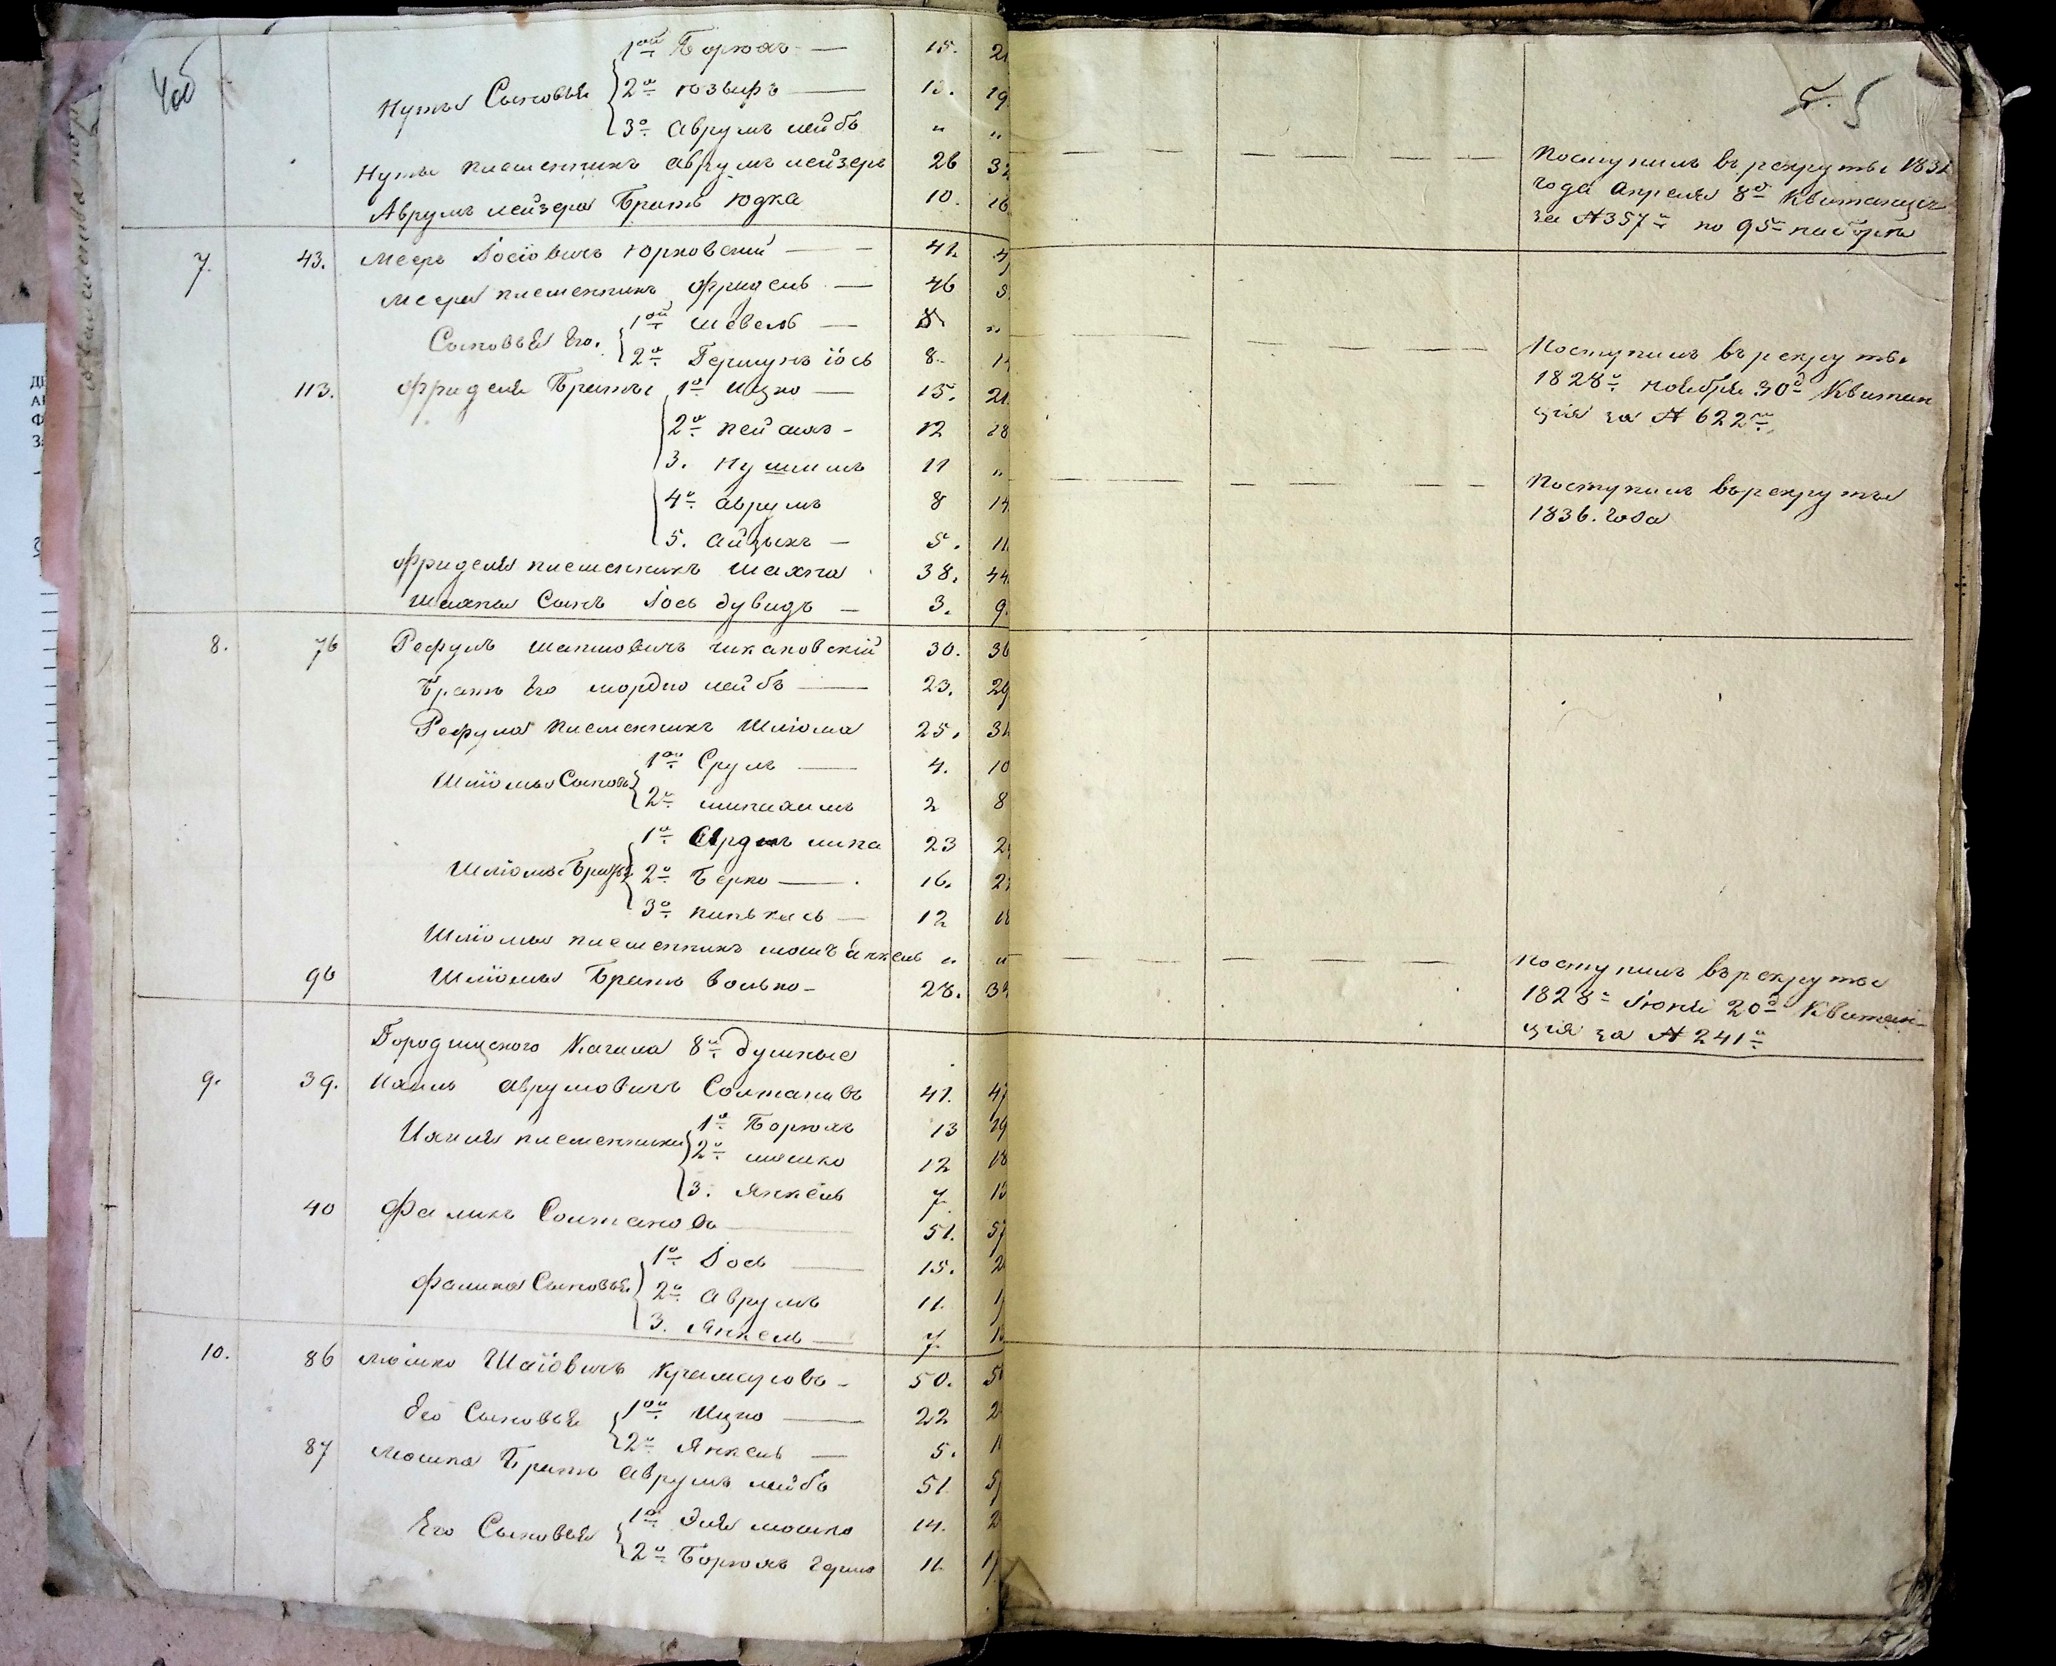 4об
1ой Борохъ — 15. 21
Нуты Сыновья 2й Юзьифъ — 13. 19
3й Аврумъ лейбъ „ „
Нуты племенникъ Аврумъ лейзеръ 26 32
Аврумъ лейзера Братъ Юдка 10. 16
7. 43. Мееръ Іосіовичъ Юрковский — 41.
Меера племенникъ Фридель — 46
Сыновья Его. 1ой Шевель — 8 „
2й Гершунъ Іось 8. 14
113. Фриделя Браты 1й Ицко — 15. 21.
2й Пейсахъ - 12 18
3. Нушимъ 11 „
4й Аврумъ 8 14
5. Айзыкъ — 5. 11.
Фриделя племенникъ Шахна 38. 44.
Шахны Сынъ Іось Дувидъ — 3. 9.
8. 76 Рефулъ Шапшовичъ Чикановскій 30. 36
Братъ Его Мордко лейбъ — 23. 29
Рефула племенникъ Шліома 25. 31
Шліомы Сыновья 1ой Срулъ — 4. 10
2й 2 8
Шліомы Братья 1й липа 23
2й Берко — 16.
3й Пинькасъ — 12 18
Шліомы племенникъ Мошъ Янкель „ „
90 Шліомы Братъ Волько - 28. 34
Городищского Кагала 8й душные
9. 39. Ихилъ Аврумовичъ Солтановъ 41. 47
Ихиля племенники 1й Борохъ 13 19
2й Мошко 12 18
3. Янкель 7. 13
40 Фаликъ Солтановъ — 51. 57
Фалика Сыновья 1й Іось — 15.
2й Аврумъ 11.
3. Янкель — 7.
10. 86 Мошко Шаіовичъ - 50.
Его Сыновья 1ой Ицко — 22
2й Янкель — 5.
87 Мошка Братъ Аврумъ лейбъ 51
Его Сыновья 1й Эля Мошко 14.
2й Борохъ Герш 11.
5. 5
Поступилъ въ рекруты 1831
года Апреля 8го Квитанція
за № 357м по 95м наборы
Поступилъ въ рекруты
1828го Ноября 30го Квитан
ція за № 622м
Поступилъ въ рекруты
1836. года
Поступилъ въ рекруты
1828го Іюня 20го Квитан-
ція за № 241м